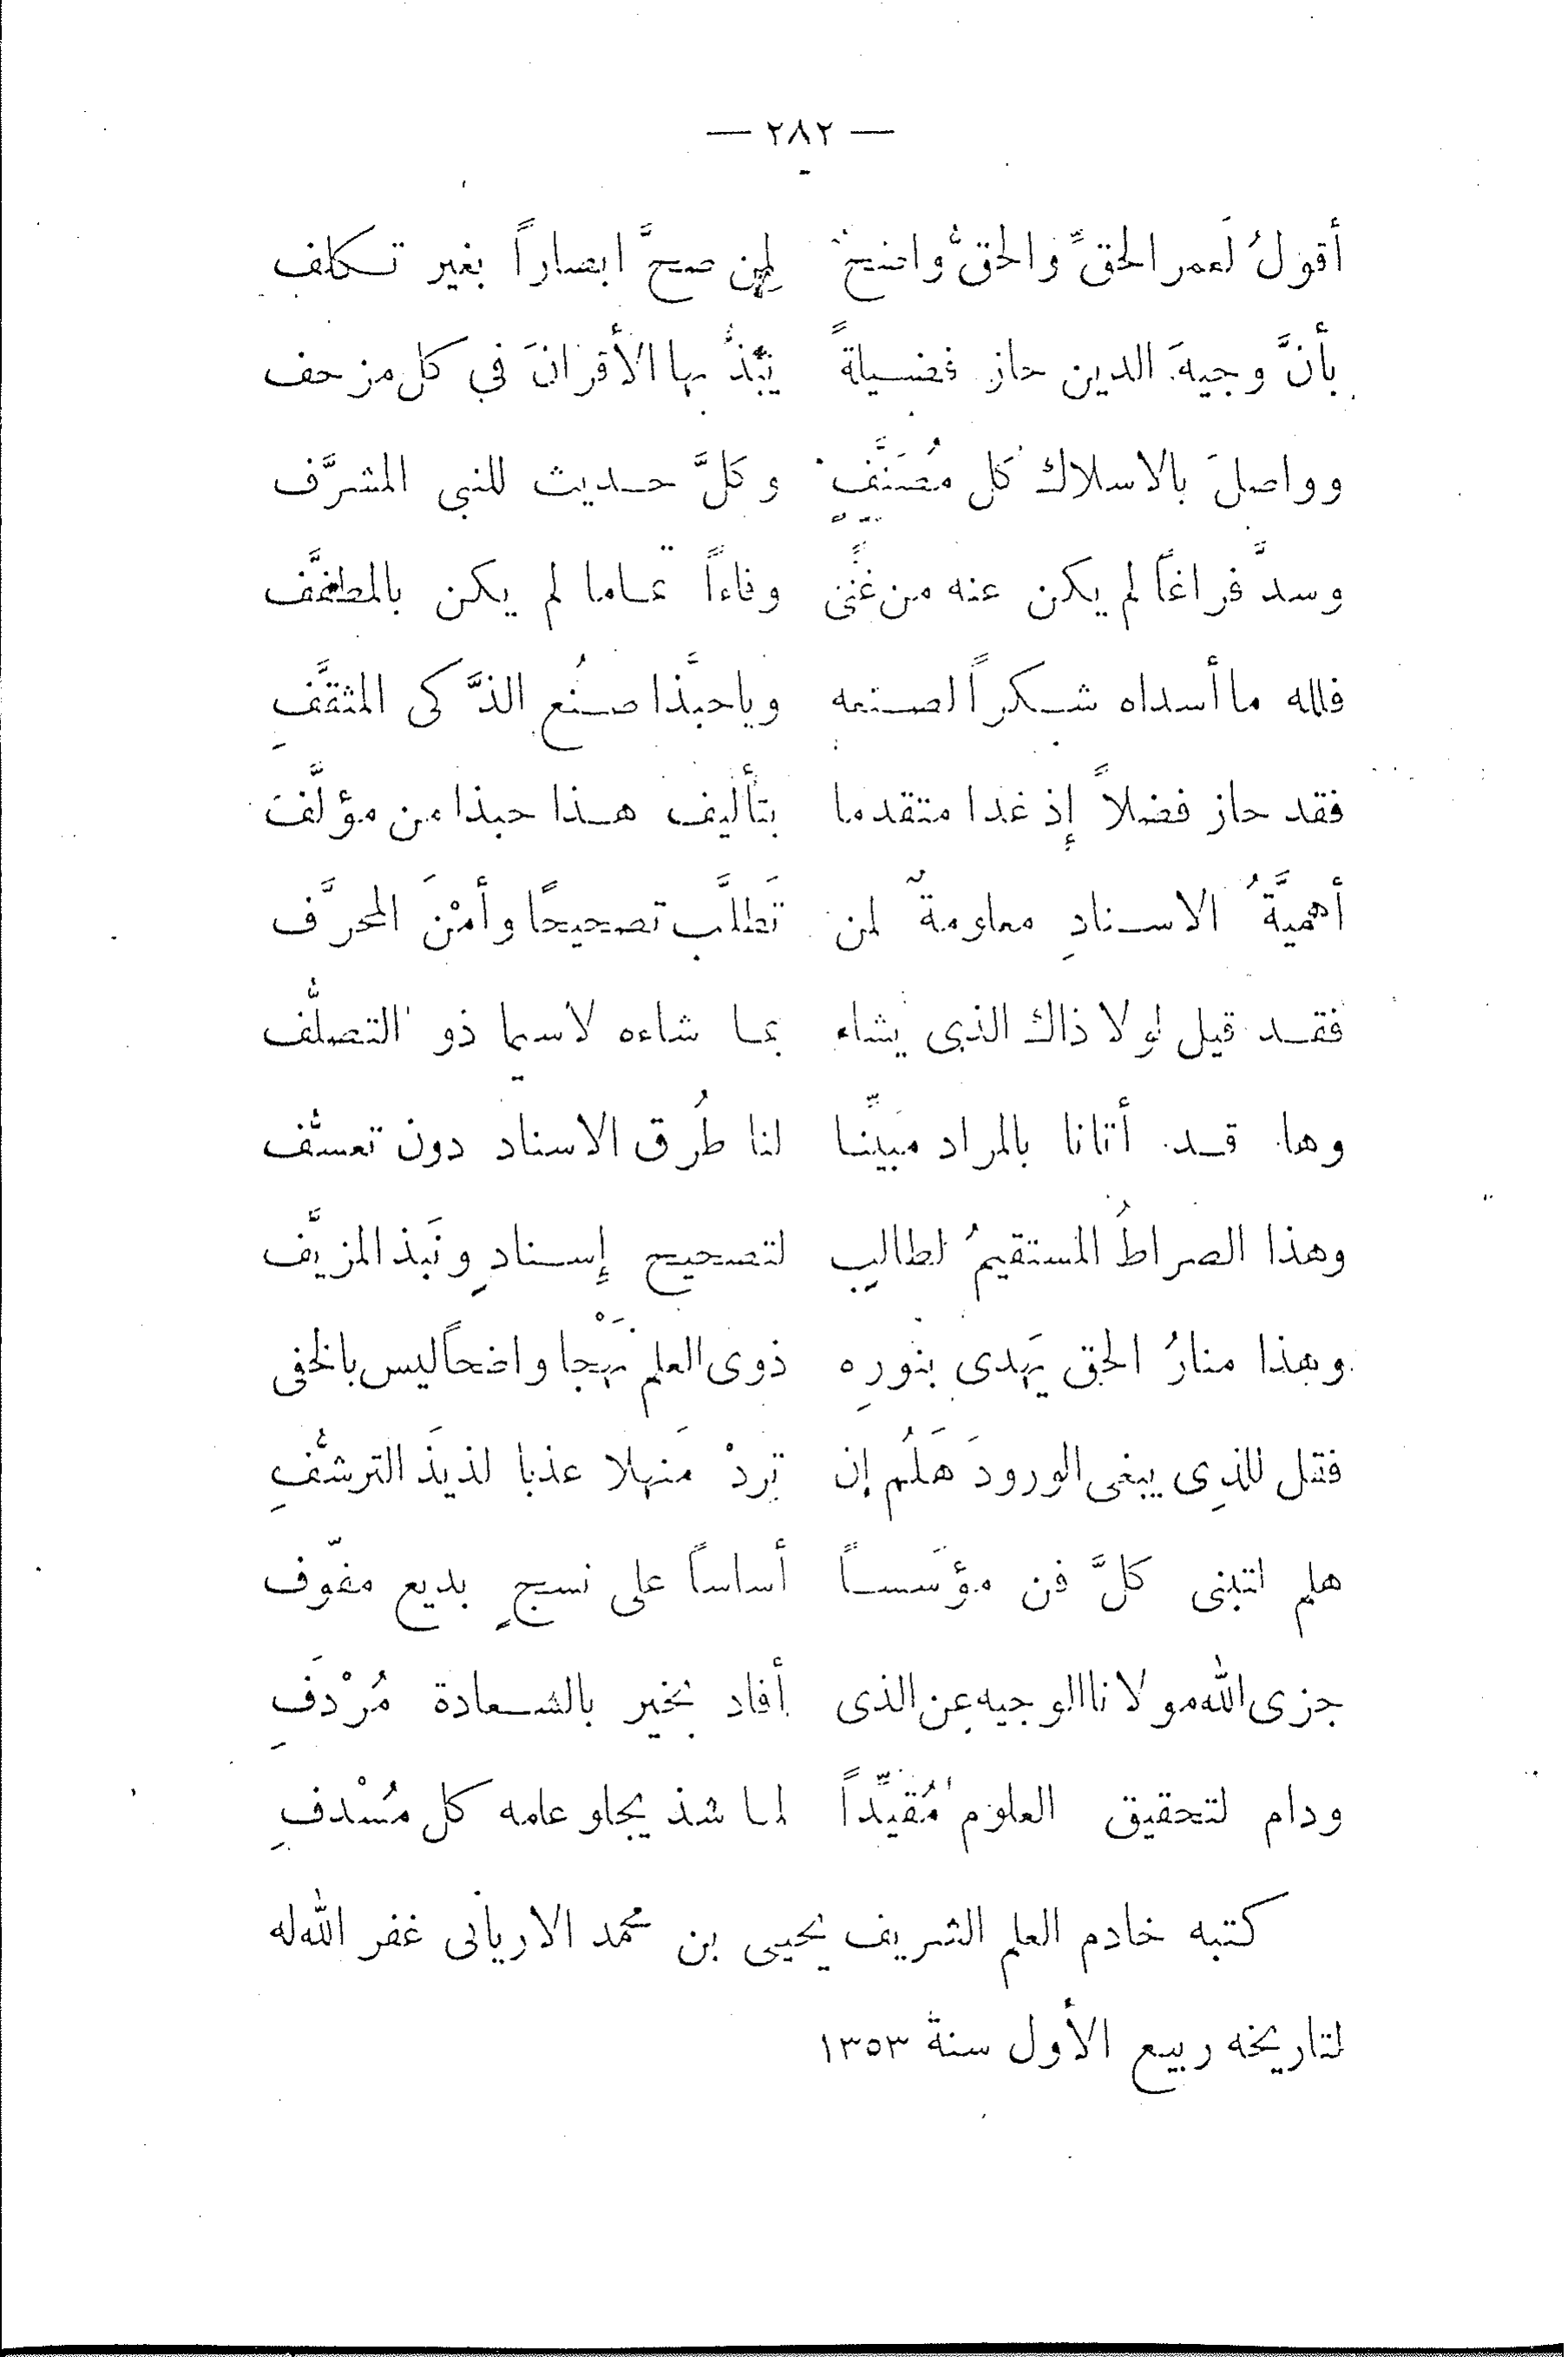 — ٢٨٢ —
أقولُ لَعمر الحقِّ والحقُّ واضحٌ لمن صحَّ ابصاراً بغير تكلف
بأنَّ وجيهَ الدين حاز فضيلةً يَبُذُّ بها الأقرانَ في كل مزحف
وواصلَ بالاسلاك كل مُصَنَّفٍ وكلَّ حديث للنبي المشرَّف
وسدَّ فراغاً لم يكن عنه من غنًى وفاءاً تماما لم يكن بالمطفَّف
فلله ما أسداه شكراً لصنعه وياحبَّذا صنُع الذَّكى المثقَّفِ
فقد حاز فضلاً إذ غدا متقدما بتأليف هذا حبذا من مؤلَّف
أهميَّةُ الاسنادِ معلومةٌ لمن تَطلَّب تصحيحًا وأمْنَ المحرَّف
فقد قيل لولا ذاك الذى يشاء بما شاءه لاسيما ذو التصلُّف
وها قد أتانا بالمراد مبيِّنا لنا طُرق الاسناد دون تعسُّف
وهذا الصراطُ المستقيمُ لطالبٍ لتصحيح إسنادٍ ونَبذ المزيَّف
وهذا منارُ الحق يَهدى بنورِه ذوى العلم نَهْجا واضحاً ليس بالخفى
فقل للذِى يبغى الورودَ هَلُم إن تردْ مَنهلا عذبا لذيذَ الترشُّفِ
هلم لتبنى كلَّ فن مؤسَساً أساساً على نسجٍ بديع مفوّف
جزى الله مولانا الوجيه عن الذى أفاد بخير بالسعادة مُرْدَفِ
ودام لتحقيق العلوم مُقيِّداً لما شذ يجلو علمه كل مُسْدفِ
كتبه خادم العلم الشريف يحيى بن محمد الاريانى غفر الله له
لتاريخه ربيع الأول سنة ١٣٥٣